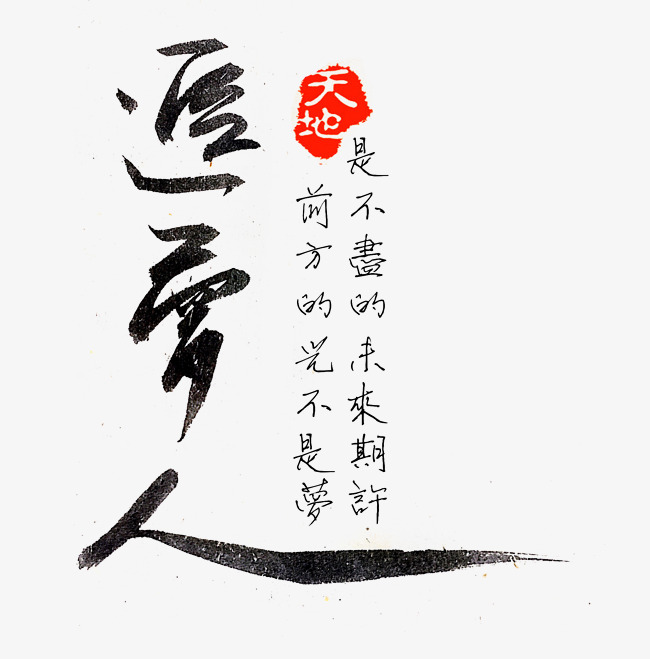 天地
是不盡的未來期許
前方的光不是夢
追夢人